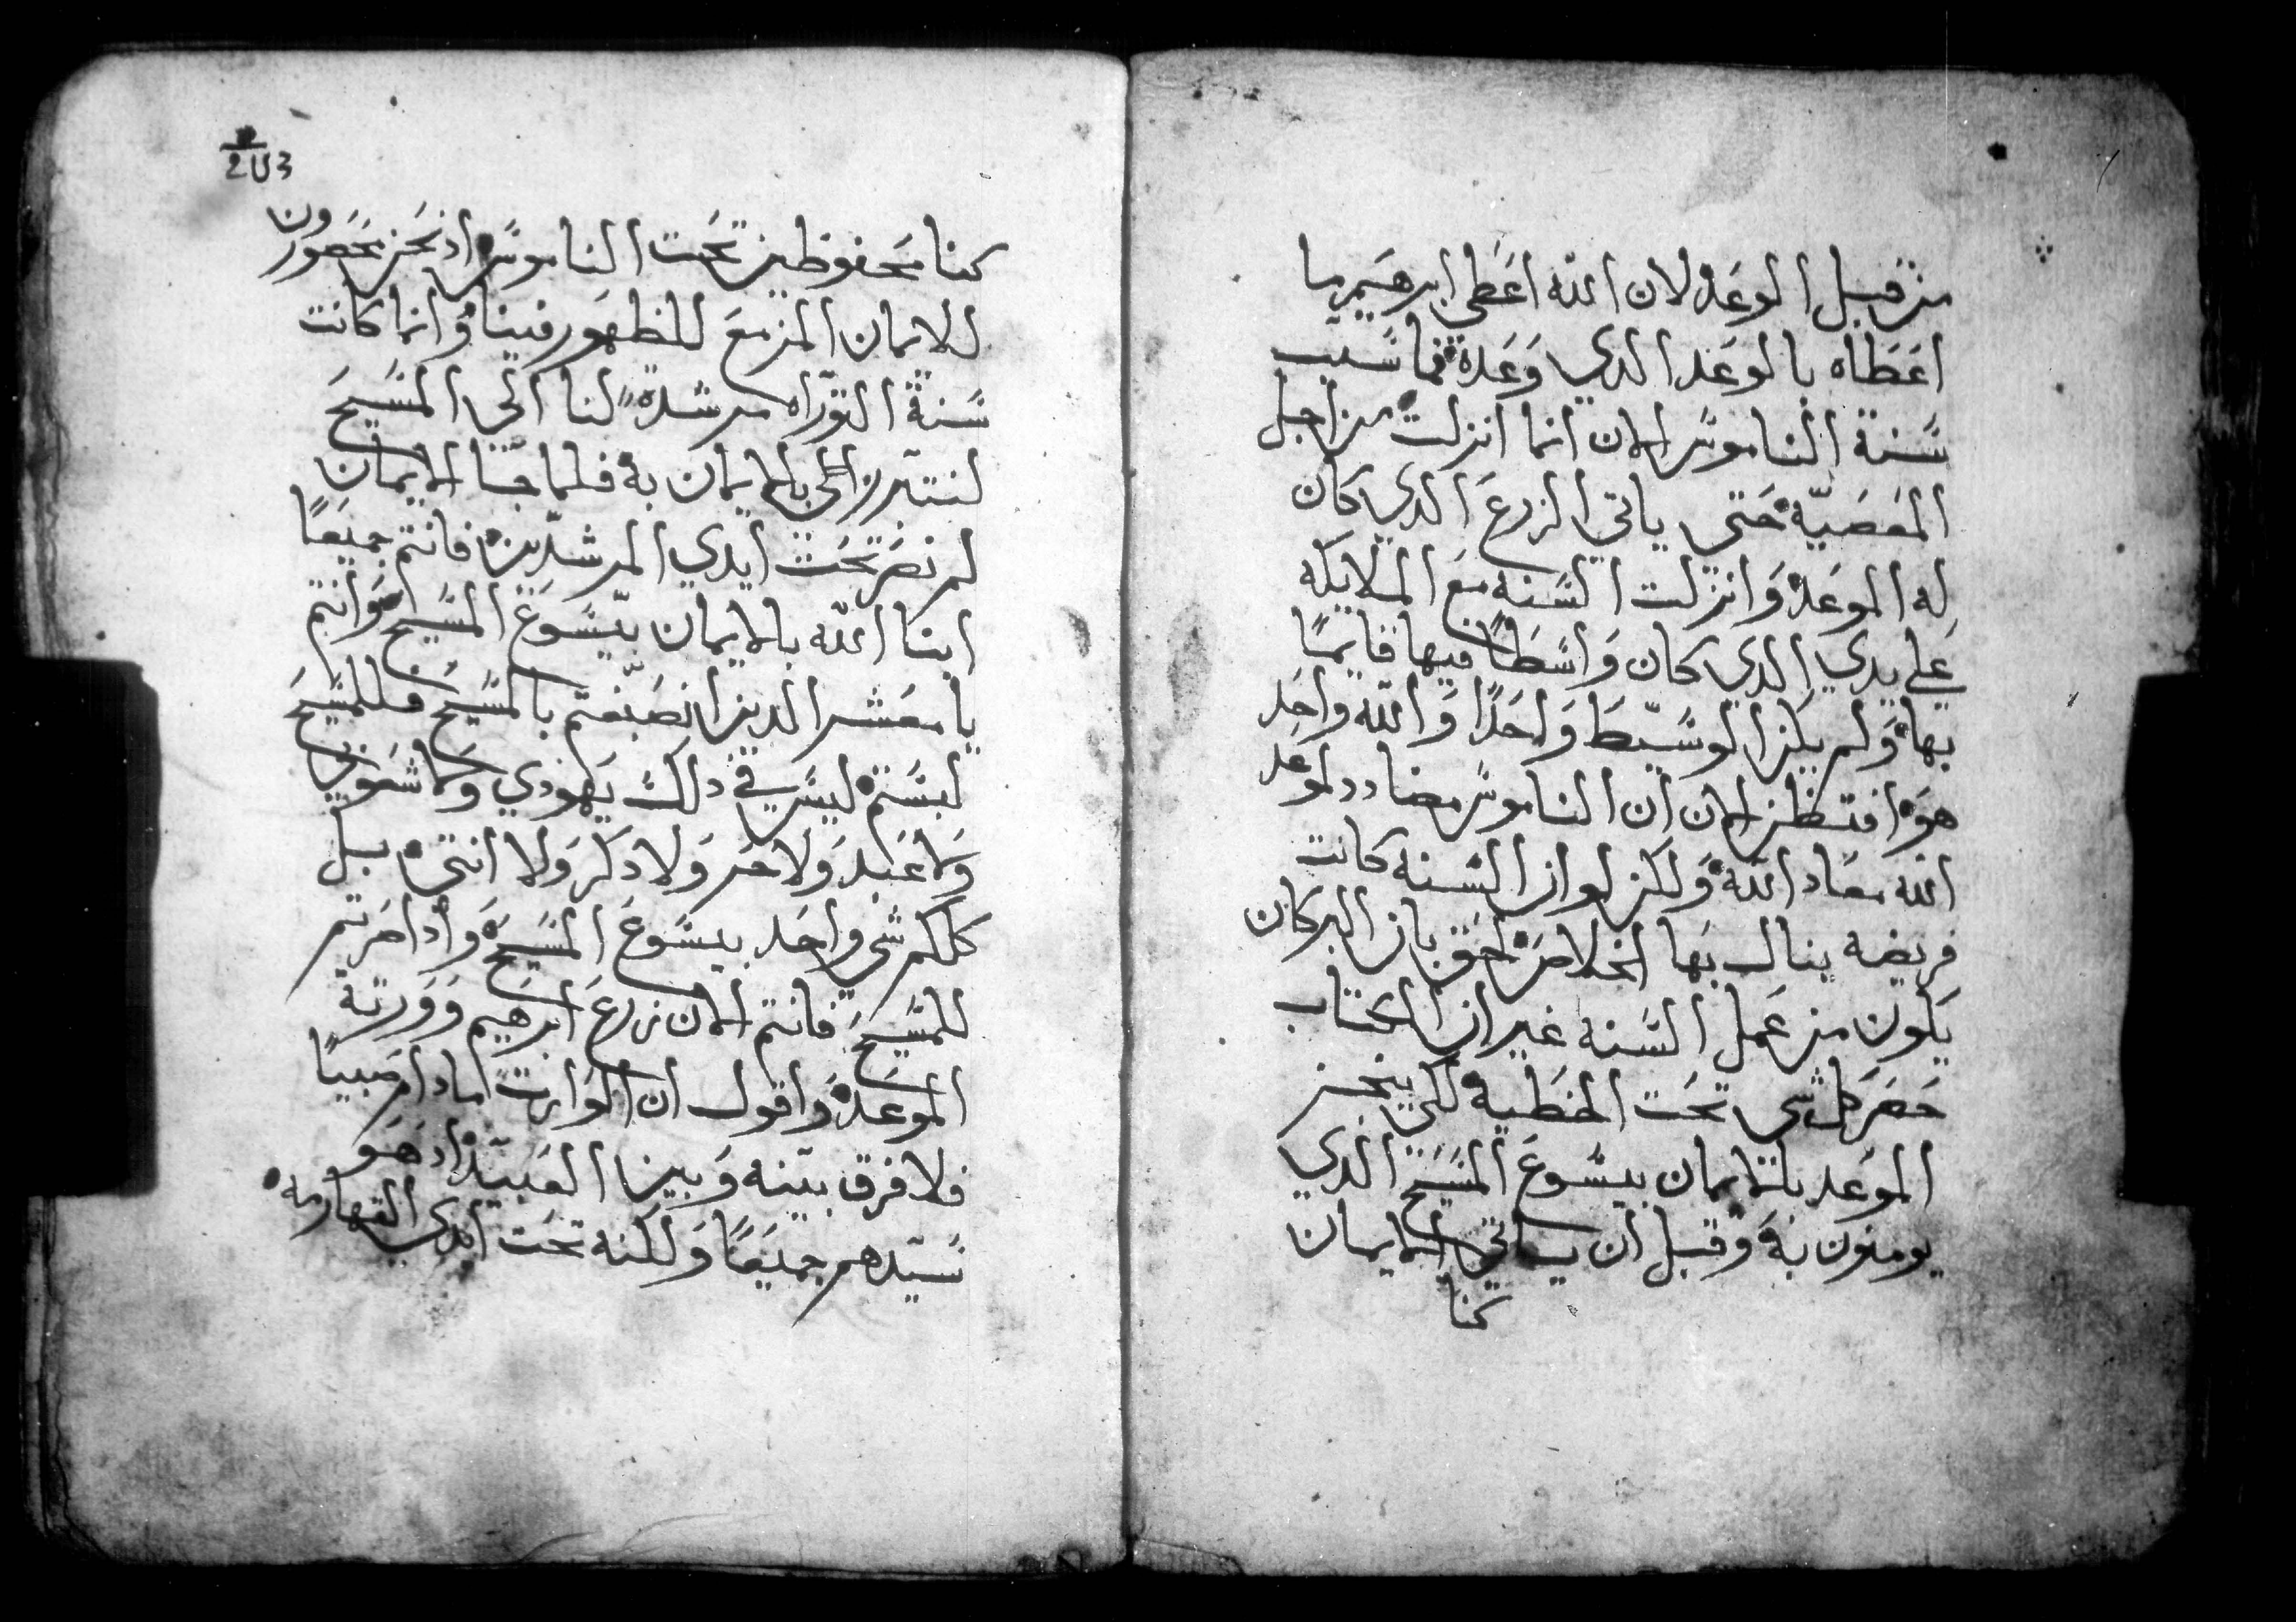 من قبل الوعد لان الله اعطى ابرهيم ما
اعطاه بالوعد الدي وعده فما سبب
سنة الناموس الان انما انزلت من اجل
المعصية حتى ياتي الزرع الدي كان
له الموعد وانزلت السنه مع الملايكه
على يدي الدي كان واسطا فيها قايما
بها ولم يكن الوسيط واحدا والله واحد
هو افتظن الان ان الناموس مضادد لموعد
الله معاد الله ولكن لو ان السنه كانت
فريضه ينال بها الخلاص لحق بان البر كان
يكون من عمل السنه غير ان الكتاب
حصر كل شي تحت الخطية لكي ينجز
الموعد بالايمان بيسوع المسيح الدي
يومنون به وقبل ان ياتي الايمان
كنا
203
كنا محفوظين تحت الناموس اد نحن محصورون
للايمان المزمع للظهور فينا وانما كانت
سنة التوراه مرشده لنا الى المسيح
لنتبرر بالايمان به فلما جا الايمان
لم نصر تحت ايدي المرشدين فانتم جميعا
ابنا الله بالايمان بيسوع المسيح وانتم
يا معشر الدين انصبغتم بالمسيح فللمسيح
لبستم ليس في دلك يهودي ولا شعوبي
ولا عبد ولا حر ولا دكر ولا انتى بل
كلكم شي واحد بيسوع المسيح وادا صرتم
للمسيح فانتم الان زرع ابرهيم وورتة
الموعد واقول ان الوارت ما دام صبيا
فلا فرق بينه وبين العبيد اد هو
سيدهم جميعا ولكنه تحت ايدي القهارمه